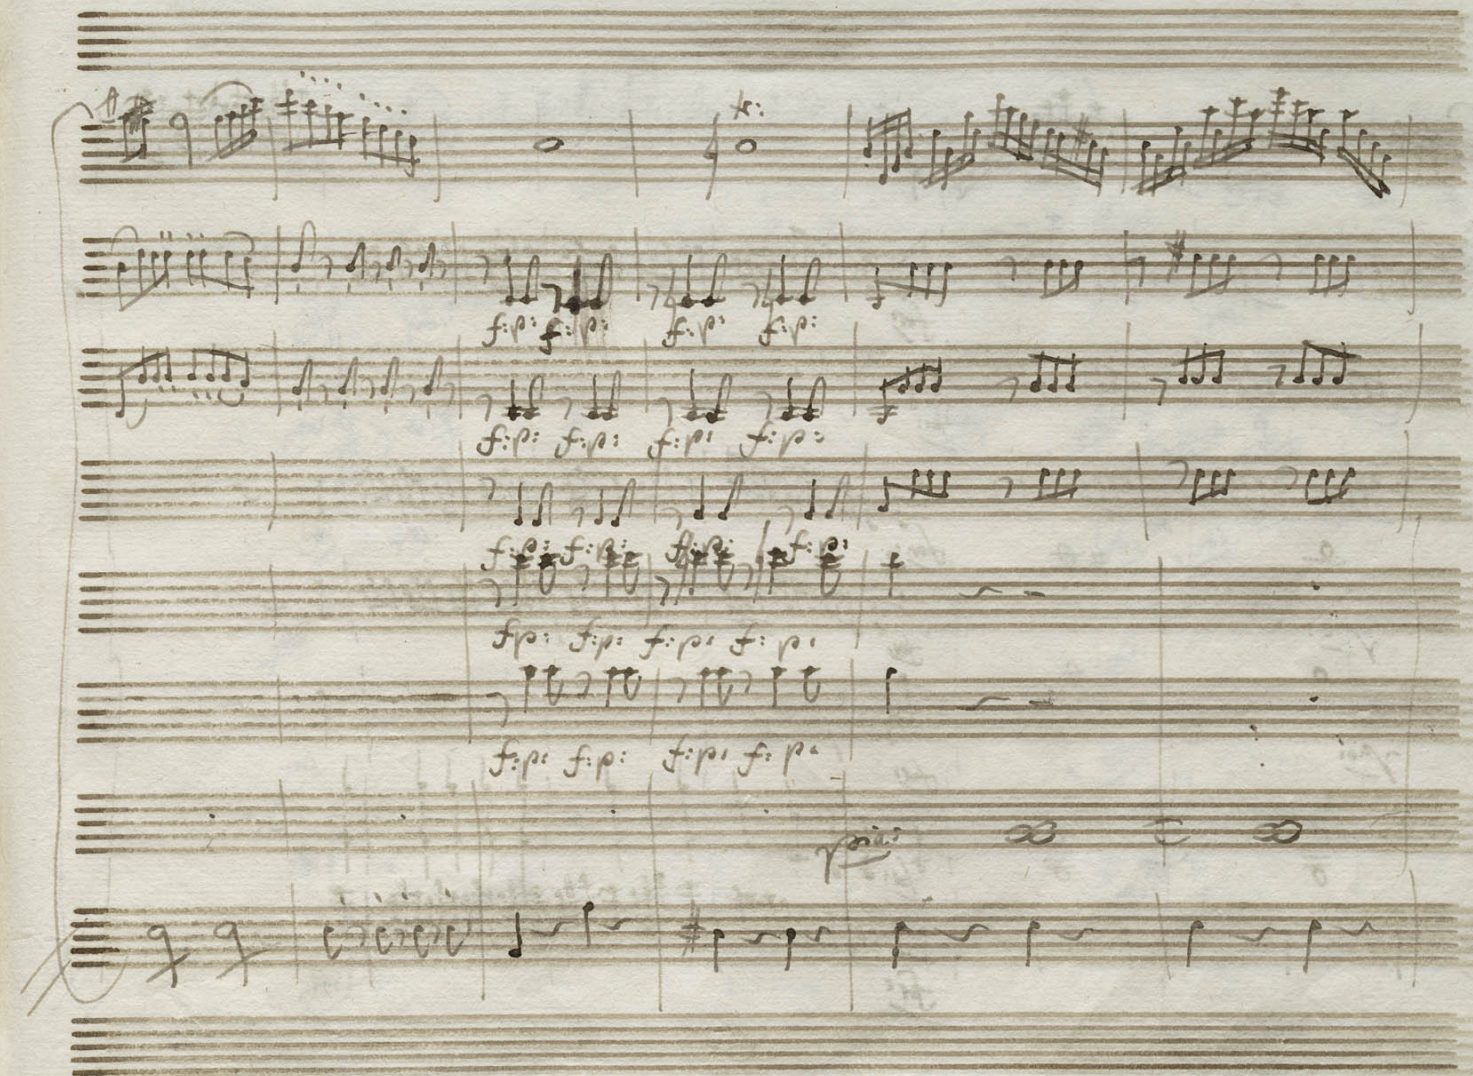 tr:
f:p: f:p: f:p: f:p:
f:p: f:p: f:p: f:p:
f:p: f:p: f:p: f:p:
fp: f:p: f:p: f:p:
f:p: f:p: f:p: f:p:
pia: